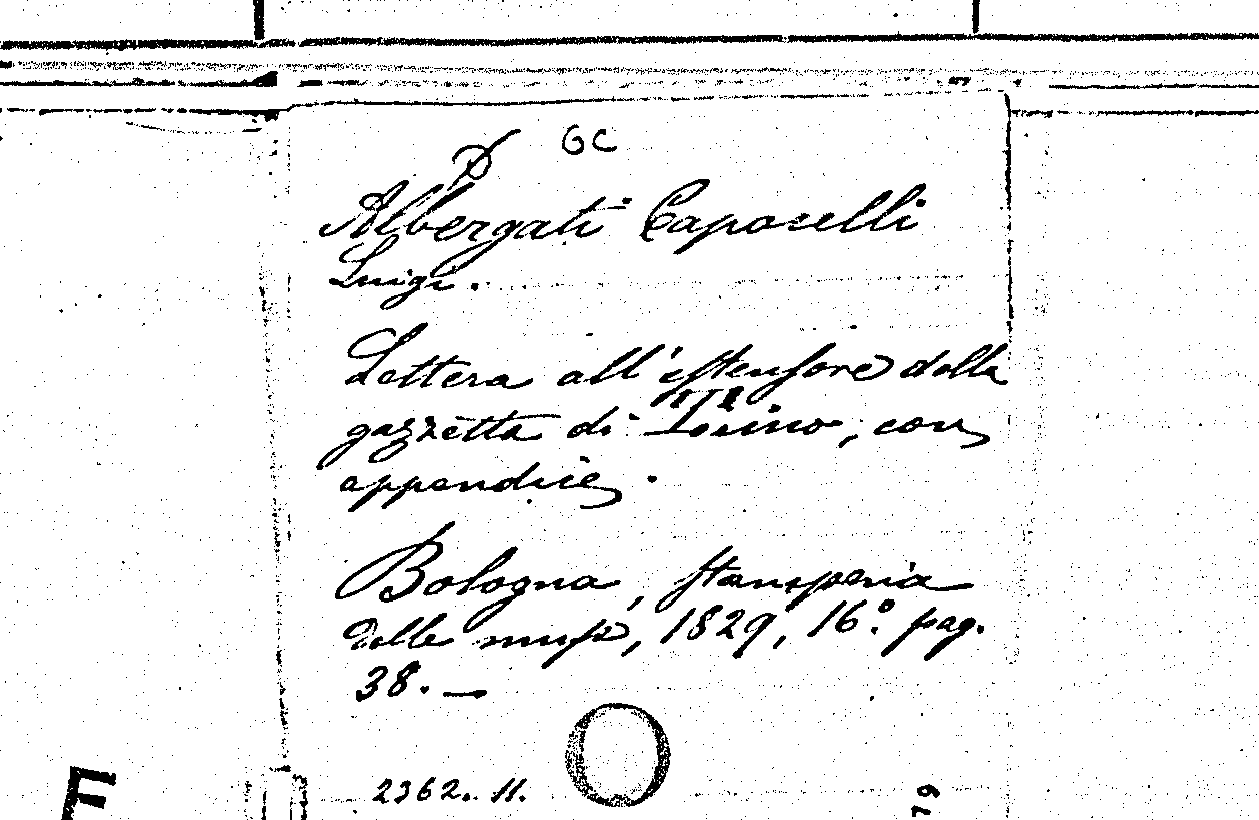 GC
Albergati Capacelli
Luigi.
Lettera all'estensore della
gazzetta di Torino, con
appendice.
Bologna, stamperia
delle muse, 1829, 16º. pag.
38. —
2362. 11.
E
79